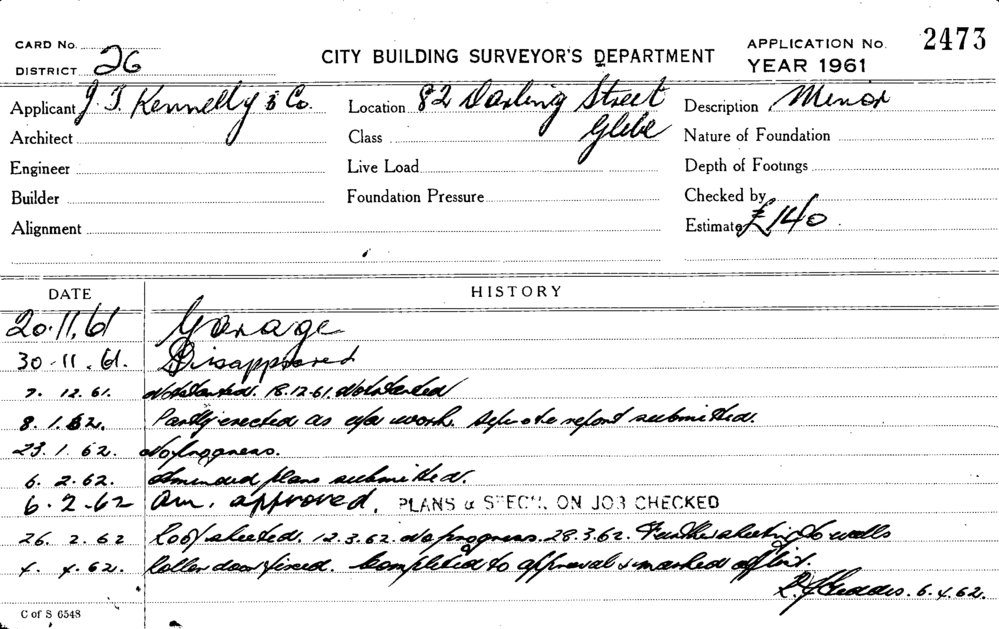 CARD No.
DISTRICT 26
CITY BUILDING SURVEYOR'S DEPARTMENT
APPLICATION No. 2473
YEAR 1961
Applicant J. T. Kennelly & Co.
Location 82 Darling Street
Glebe
Description Minor
Architect
Class
Nature of Foundation
Engineer
Live Load
Depth of Footings
Builder
Foundation Pressure
Checked by
Alignment
Estimate £140
DATE
HISTORY
20.11.61 Garage
30-11.61. Disapproved
7. 12. 61. Not started. 18.12.61. Not started
8. 1. 62. Partly erected as work. Separate report submitted.
23. 1. 62. No progress.
6. 2. 62. Amended plans submitted.
6.2.62 Am. approved. PLANS & SPEC'N. ON JOB CHECKED
26. 2. 62 Roof sheeted. 12.3.62. No progress. 28.3.62. Further sheeting to walls
4. 4. 62. Roller door fixed. Completed to approval & marked off list.
6.4.62.
C of S 6548